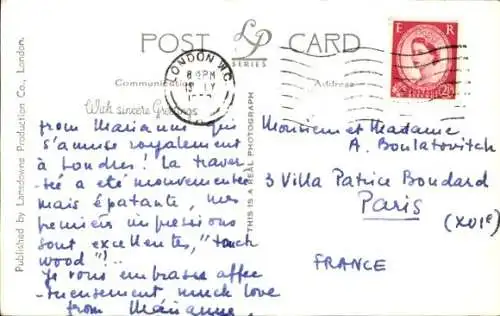 POST CARD
LP
SERIES
Communication
Address
With sincere Greetings
from Marianne qui
s'amuse royalement
à Londres! La traver
-sée a été mouvementée
mais épatante, mes
premières impressions
sont excellentes, "touch
wood"!..
Je vous embrasse affec
-tueusement much love
from Marianne.
Monsieur et Madame
A. Boulatovitch
3 Villa Patrice Boudard
Paris
(XVIe)
FRANCE
LONDON W.C.
E R
Published by Lansdowne Production Co., London.
THIS IS A REAL PHOTOGRAPH